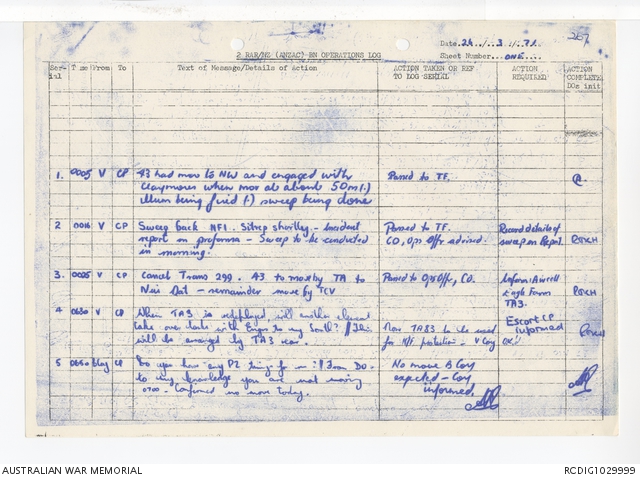 267
Date. 24../..3../..71.
2 RAR/NZ (ANZAC) BN OPERATIONS LOG
Sheet Number... ONE....
Serial Time From To Text of Message/Details of Action ACTION TAKEN OR REF TO LOG SERIAL ACTION REQUIRED ACTION COMPLETE DOs init
1. 0005 V CP 43 had mov to NW and engaged with
claymores when mov at about 50m (.)
illum being fired (.) sweep being done
Passed to TF.
2 0016 V CP Sweep back NFI. Sitrep shortly - incident
report on proforma - Sweep to be conducted
in morning.
Passed to TF.
CO, Ops Offr advised.
Record details of
sweep on Report.
3. 0025 V CP Cancel Trans 299. 43 to move by TA to
Nui Dat - remainder move by TCV
Passed to Ops Offr, CO.
Inform: Aircell
Eagle Farm
TA3.
4 0630 V CP When TA3 is redeployed will another element
take over task with Engrs to my South? // This
will be arranged by TA3 
Now TA83 to be used
for protection - V Coy
Escort CP
informed
5 0650 CP Do you have any P2 timings for m : // From DO.
to my knowledge you are not moving
0700. Confirmed no move today.
No move B Coy
expected - Coy
informed.
AUSTRALIAN WAR MEMORIAL
RCDIG1029999